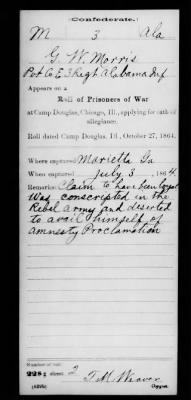 Confederate.
M 3 Ala
G. W. Morris
Pvt Co E 3 Regh Alabama Inf
Appears on a
Roll of Prisoners of War
at Camp Douglas, Chicago, Ill., applying for oath of
allegiance.
Roll dated Camp Douglas, Ill., October 27, 1864.
Where captured Marietta Ga
When captured July 3, 1864.
Remarks: Claim to have been loyal
Was conscripted in the
Rebel Army and deserted
to avail himself of
Amnesty Proclamation
Number of roll:
228; sheet 2 T. M. Weaver
Copyist.